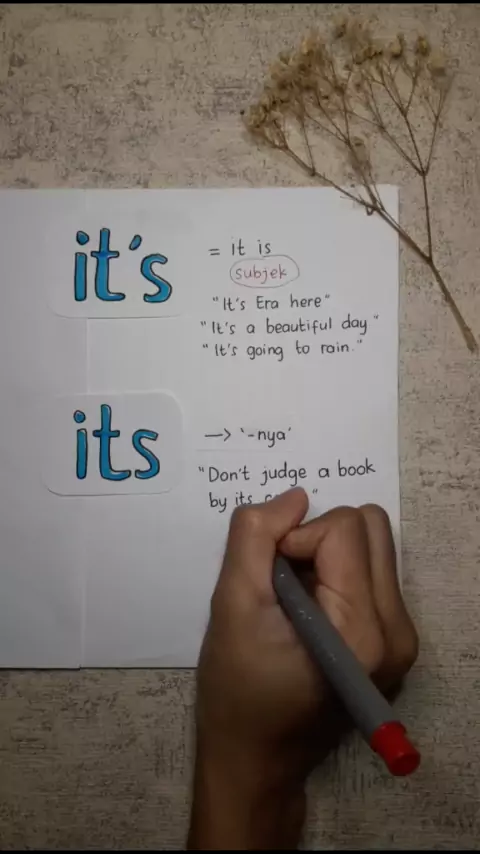 it's
= it is
subjek
"It's Era here"
"It's a beautiful day"
"It's going to rain."
its
—> '-nya'
"Don't judge a book
by its "